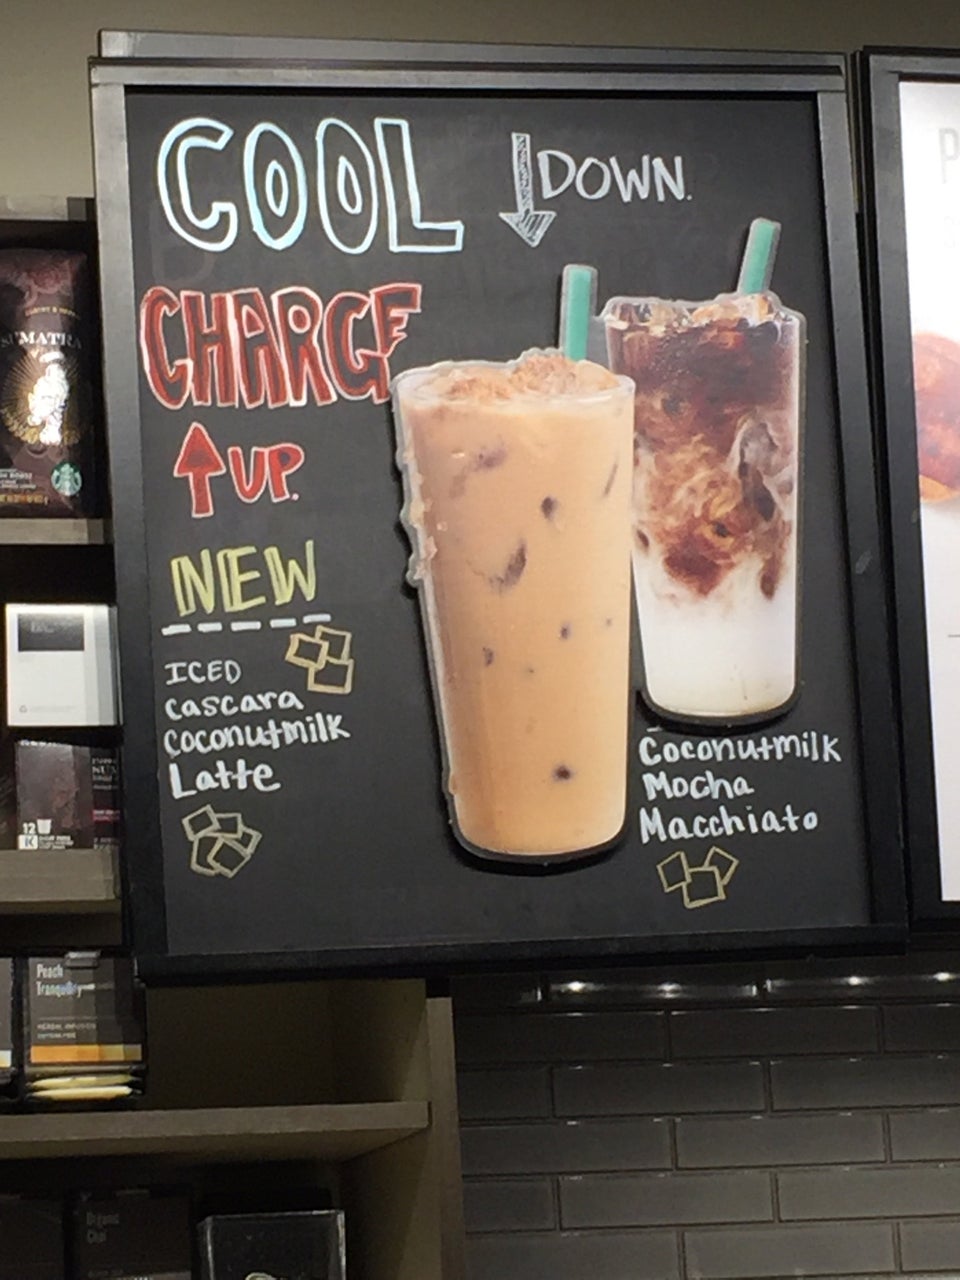 COOL
DOWN.
CHARGE
UP.
NEW
ICED
cascara
coconutmilk
Latte
Coconutmilk
Mocha
Macchiato
SUMATRA
12
K
Peach
Tranquility
Organic
Chai